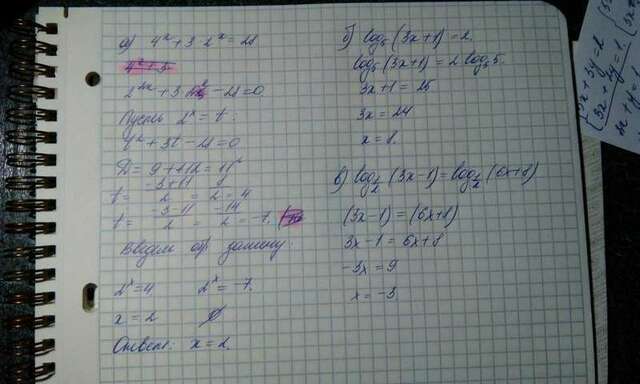 а) 4^x + 3·2^x = 28
2^2x + 3·2^x - 28 = 0.
Пусть 2^x = t:
t^2 + 3t - 28 = 0
D = 9 + 112 = 11^2
t = (-3+11)/2 = 8/2 = 4
t = (-3-11)/2 = -14/2 = -7.
Введем обр. замену:
2^x = 4 2^x = -7.
x = 2 ∅
Ответ: x = 2.
б) log5 (3x+1) = 2.
log5 (3x+1) = 2 log5 5.
3x+1 = 25
3x = 24
x = 8.
в) log1/2 (3x-1) = log1/2 (6x+8)
(3x-1) = (6x+8)
3x - 1 = 6x + 8
-3x = 9
x = -3